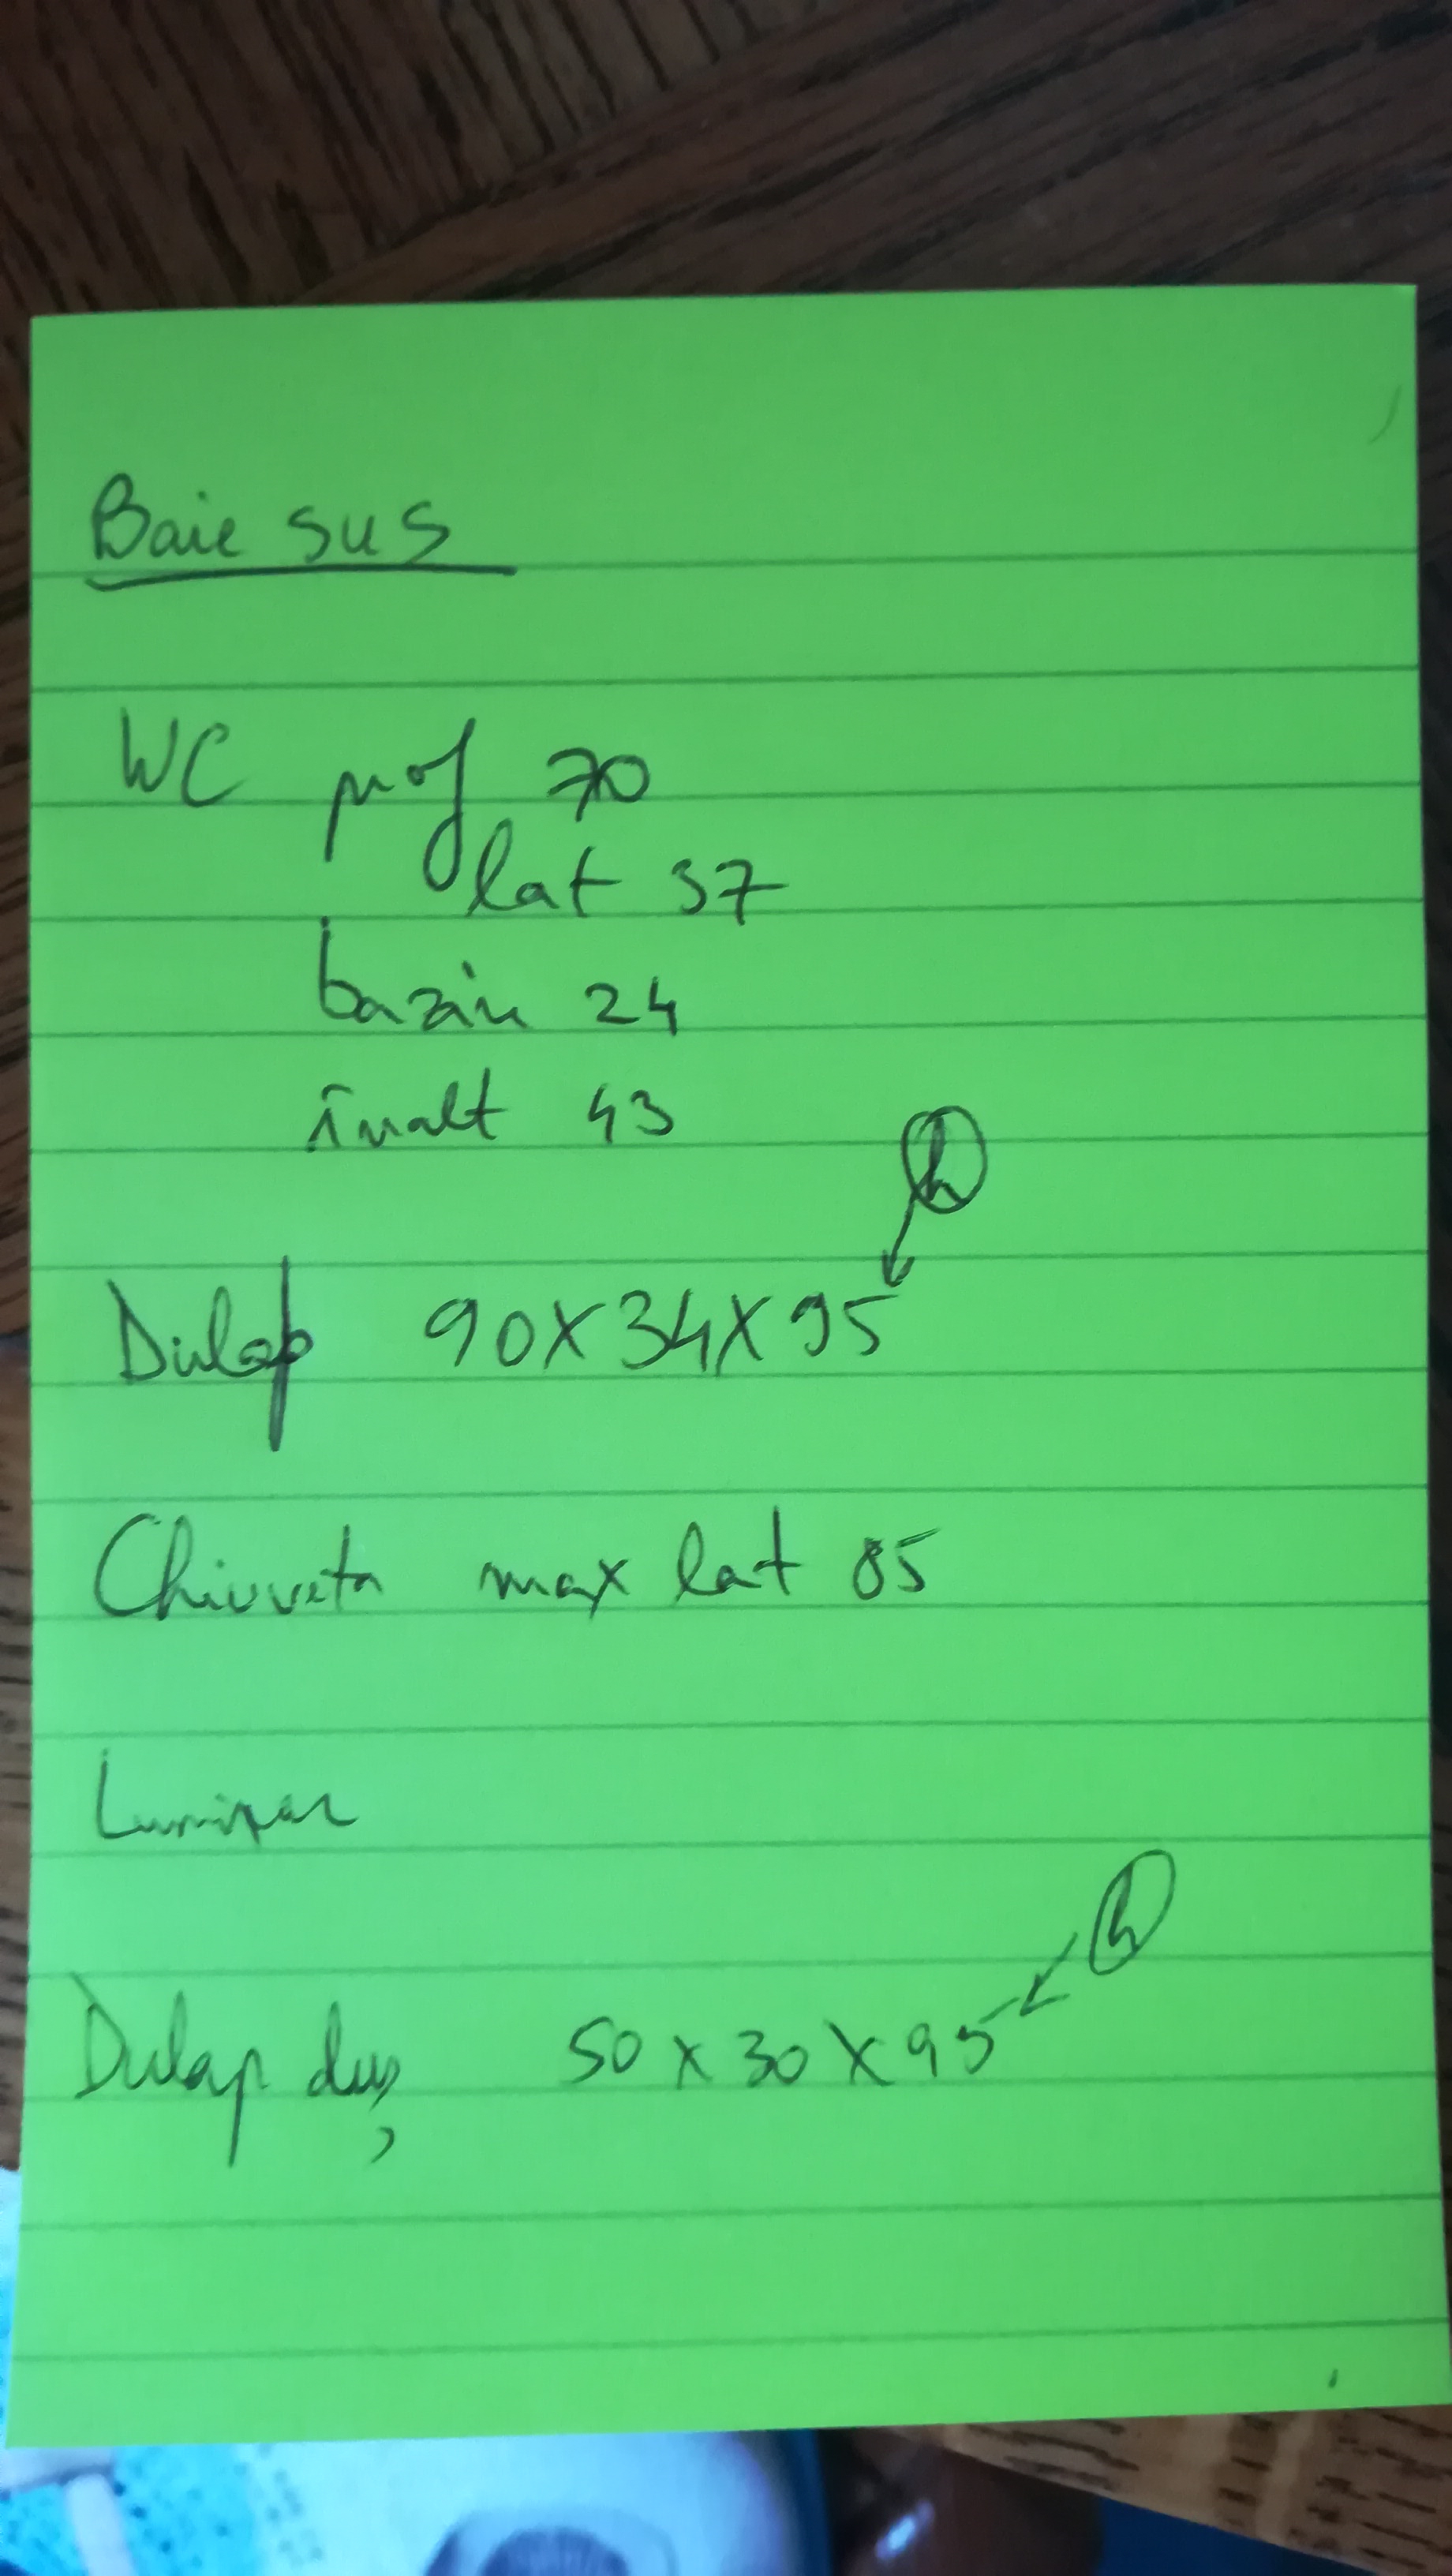 Baie sus
WC prof 70
lat 37
bazin 24
înalt 43
h
Dulap 90x34x95
Chiuveta max lat 85
h
Dulap duș 50x30x95